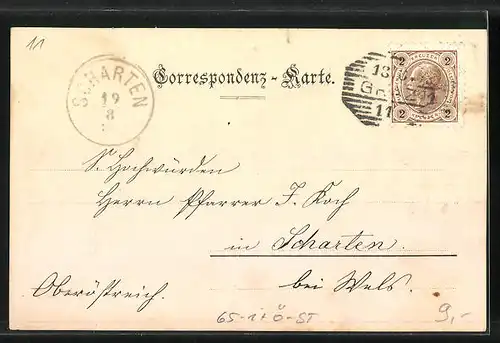 11
SCHARTEN
19
8
Correspondenz-Karte.
2 KREUZER 2
2 2
13
11
S. Hochwürden
Herrn Pfarrer J. Koch
in Scharten.
bei Wels.
Oberöstreich.
65-1+Ö-ST
9,-